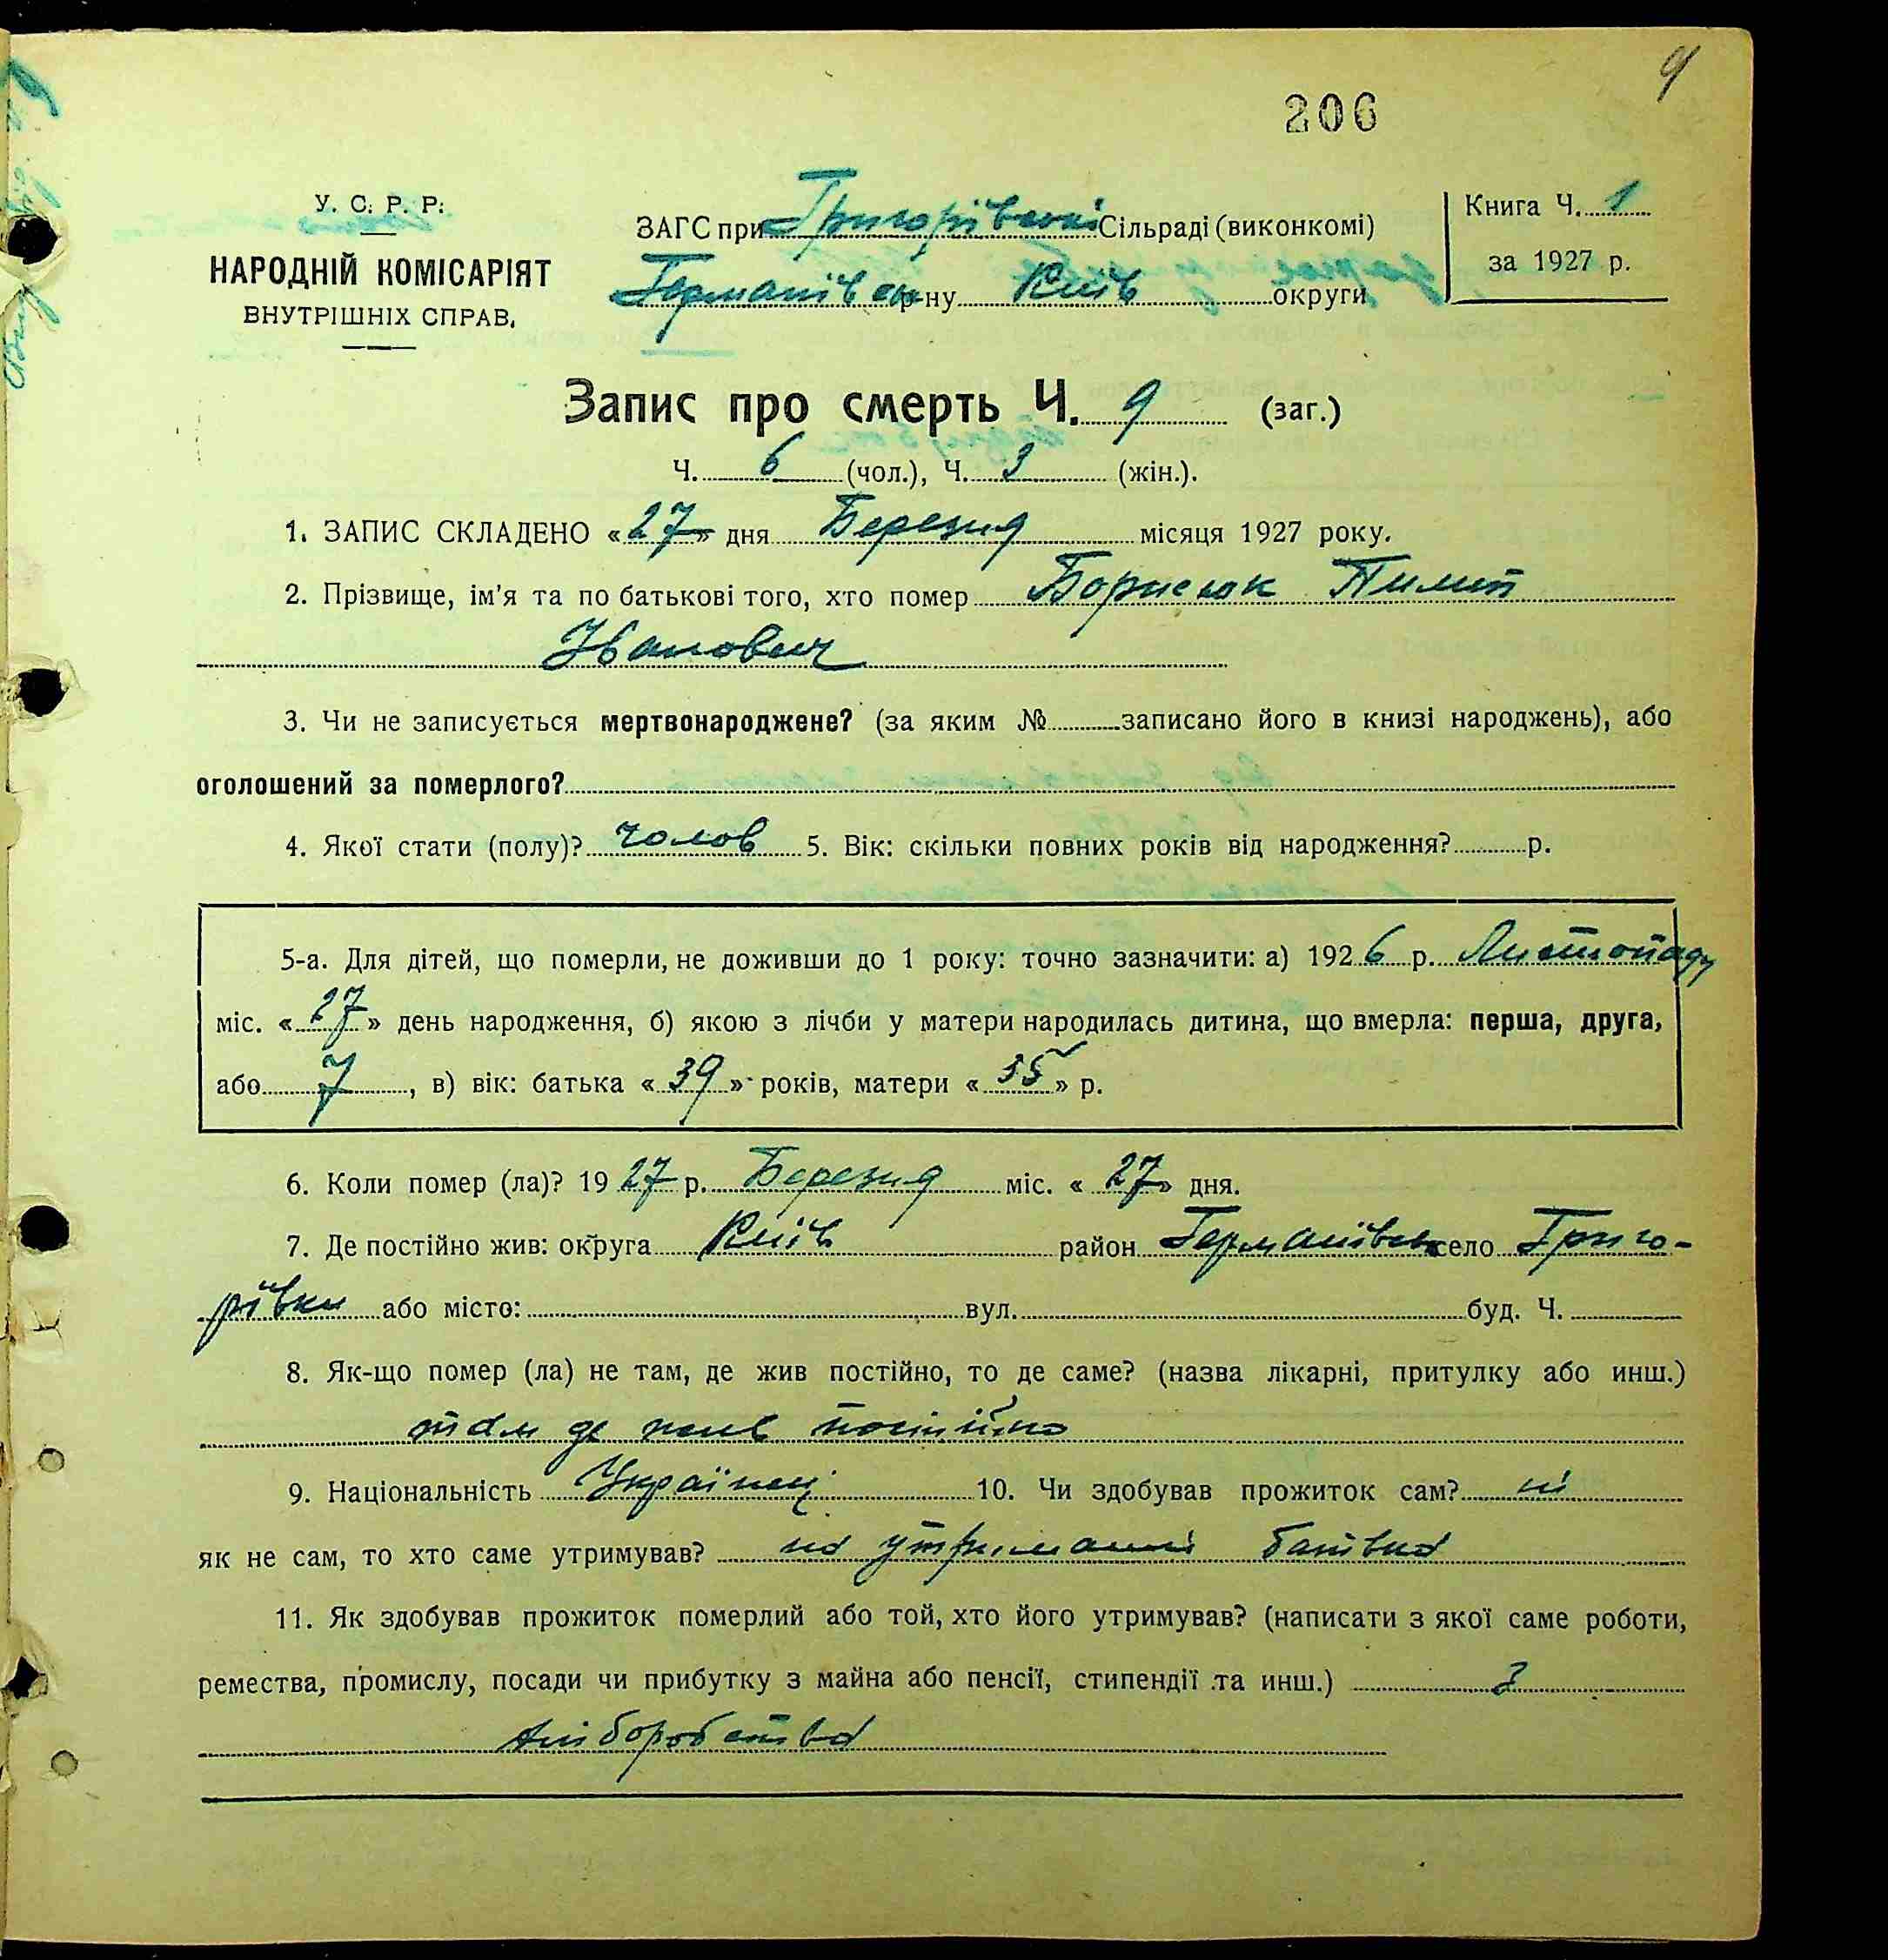 9
206
У. С. Р. Р.
НАРОДНІЙ КОМІСАРІЯТ
ВНУТРІШНІХ СПРАВ.
ЗАГС при Григорівські Сільраді (виконкомі)
Германівськ р-ну Київ округи
Книга Ч. 1
за 1927 р.
Запис про смерть Ч. 9 (заг.)
Ч. 6 (чол.), Ч. 3 (жін.).
1. ЗАПИС СКЛАДЕНО «27» дня Березня місяця 1927 року.
2. Прізвище, ім'я та по батькові того, хто помер Борисюк Пилип
Іванович
3. Чи не записується мертвонароджене? (за яким № записано його в книзі народжень), або
оголошений за померлого?
4. Якої стати (полу)? чолов 5. Вік: скільки повних років від народження? р.
5-а. Для дітей, що померли, не доживши до 1 року: точно зазначити: а) 1926 р. Листопаду
міс. «27» день народження, б) якою з лічби у матери народилась дитина, що вмерла: перша, друга,
або 7, в) вік: батька «39» років, матери «35» р.
6. Коли помер (ла)? 1927 р. Березня міс. «27» дня.
7. Де постійно жив: округа Київ район Германівськ село Григо-
рівки або місто: вул. буд. Ч.
8. Як-що помер (ла) не там, де жив постійно, то де саме? (назва лікарні, притулку або инш.)
там де жив постійно
9. Національність Українец 10. Чи здобував прожиток сам? ні
як не сам, то хто саме утримував? на утриманні батька
11. Як здобував прожиток померлий або той, хто його утримував? (написати з якої саме роботи,
ремества, промислу, посади чи прибутку з майна або пенсії, стипендії та инш.) З
хліборобства